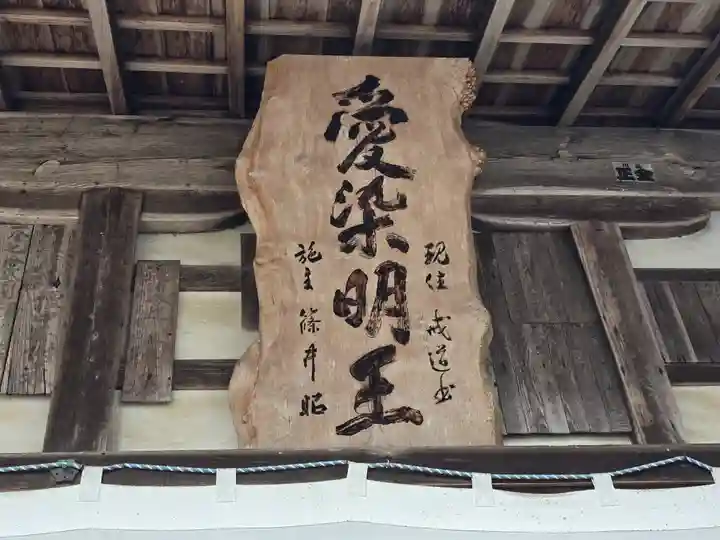 愛染明王
現住 戒道書
施主 篠井昭